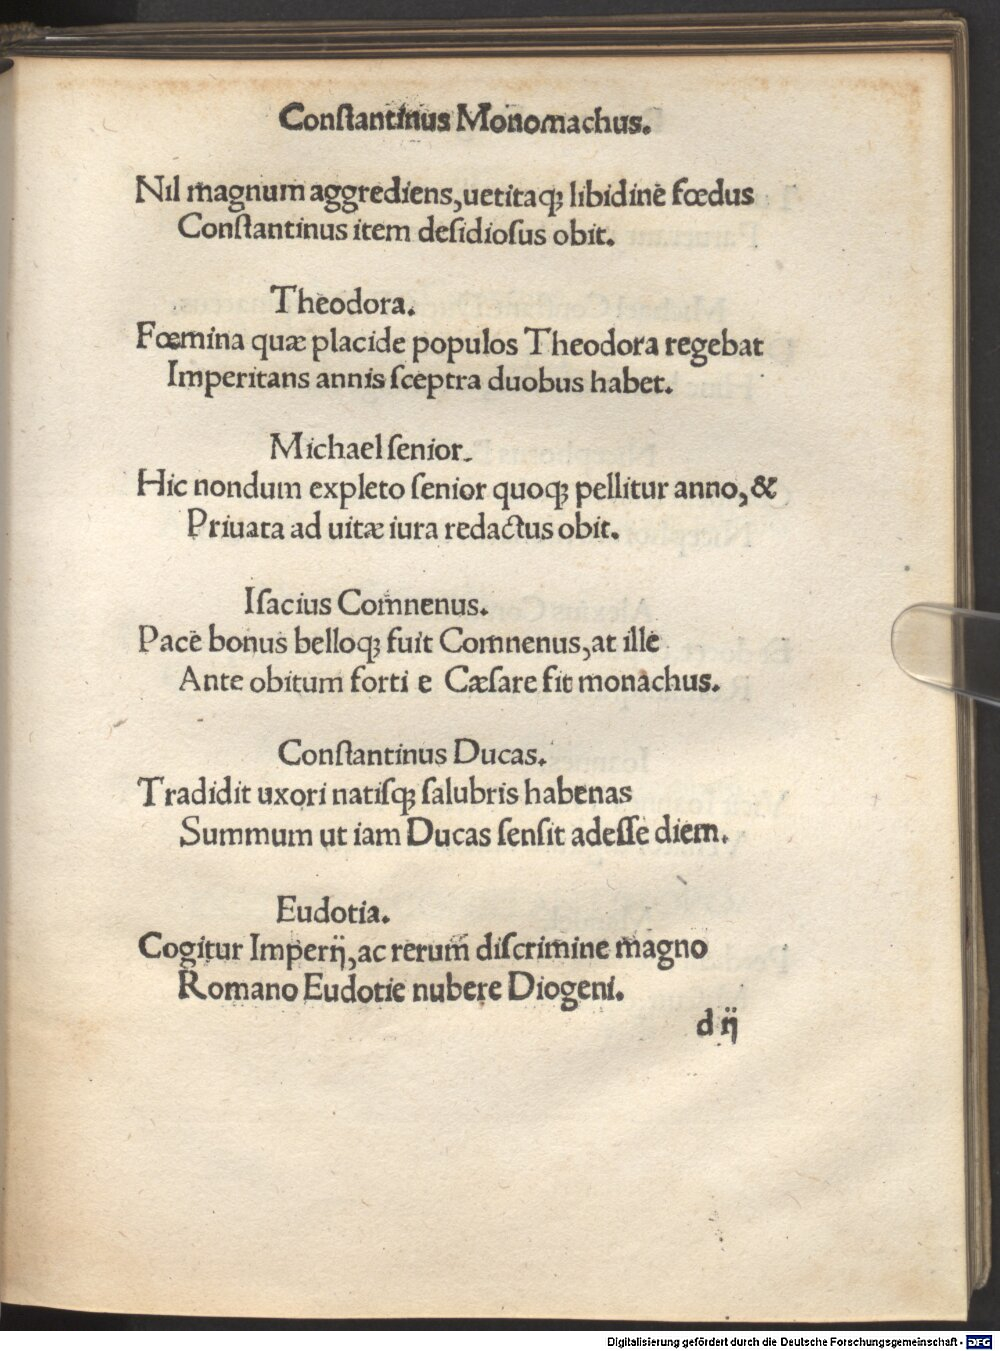 Conſtantinus Monomachus.
Nil magnum aggrediens, uetitaqꝫ libidinē fœdus
Conſtantinus item deſidioſus obit.
Theodora.
Fœmina quæ placide populos Theodora regebat
Imperitans annis ſceptra duobus habet.
Michael ſenior.
Hic nondum expleto ſenior quoqꝫ pellitur anno, &
Priuata ad uitæ iura redactus obit.
Iſacius Comnenus.
Pace bonus belloqꝫ fuit Comnenus, at ille
Ante obitum forti e Cæſare fit monachus.
Conſtantinus Ducas.
Tradidit uxori natiſqꝫ ſalubris habenas
Summum ut iam Ducas ſenſit adeſſe diem.
Eudotia.
Cogitur Imperij, ac rerum diſcrimine magno
Romano Eudotie nubere Diogeni.
d ij
Digitalisierung gefördert durch die Deutsche Forschungsgemeinschaft - DFG